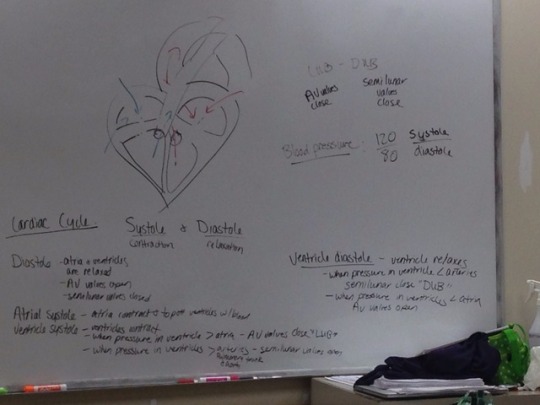 LUB - DUB
AV valves close
semilunar valves close
Blood pressure: 120/80 systole/diastole
Cardiac Cycle
Systole & Diastole
contraction
relaxation
Diastole - atria + ventricles
are relaxed
- AV valves open
- semilunar valves closed
Atrial Systole - atria contract to ventricles w/blood
Ventricle systole - ventricles contract
- when pressure in ventricle > atria - AV valves close "LUB"
- when pressure in ventricles > arteries - semilunar valves open
Ventricle diastole - ventricle relaxes
- when pressure in ventricle < arteries
semilunar close "DUB"
- when pressure in ventricles < atria
AV valves open